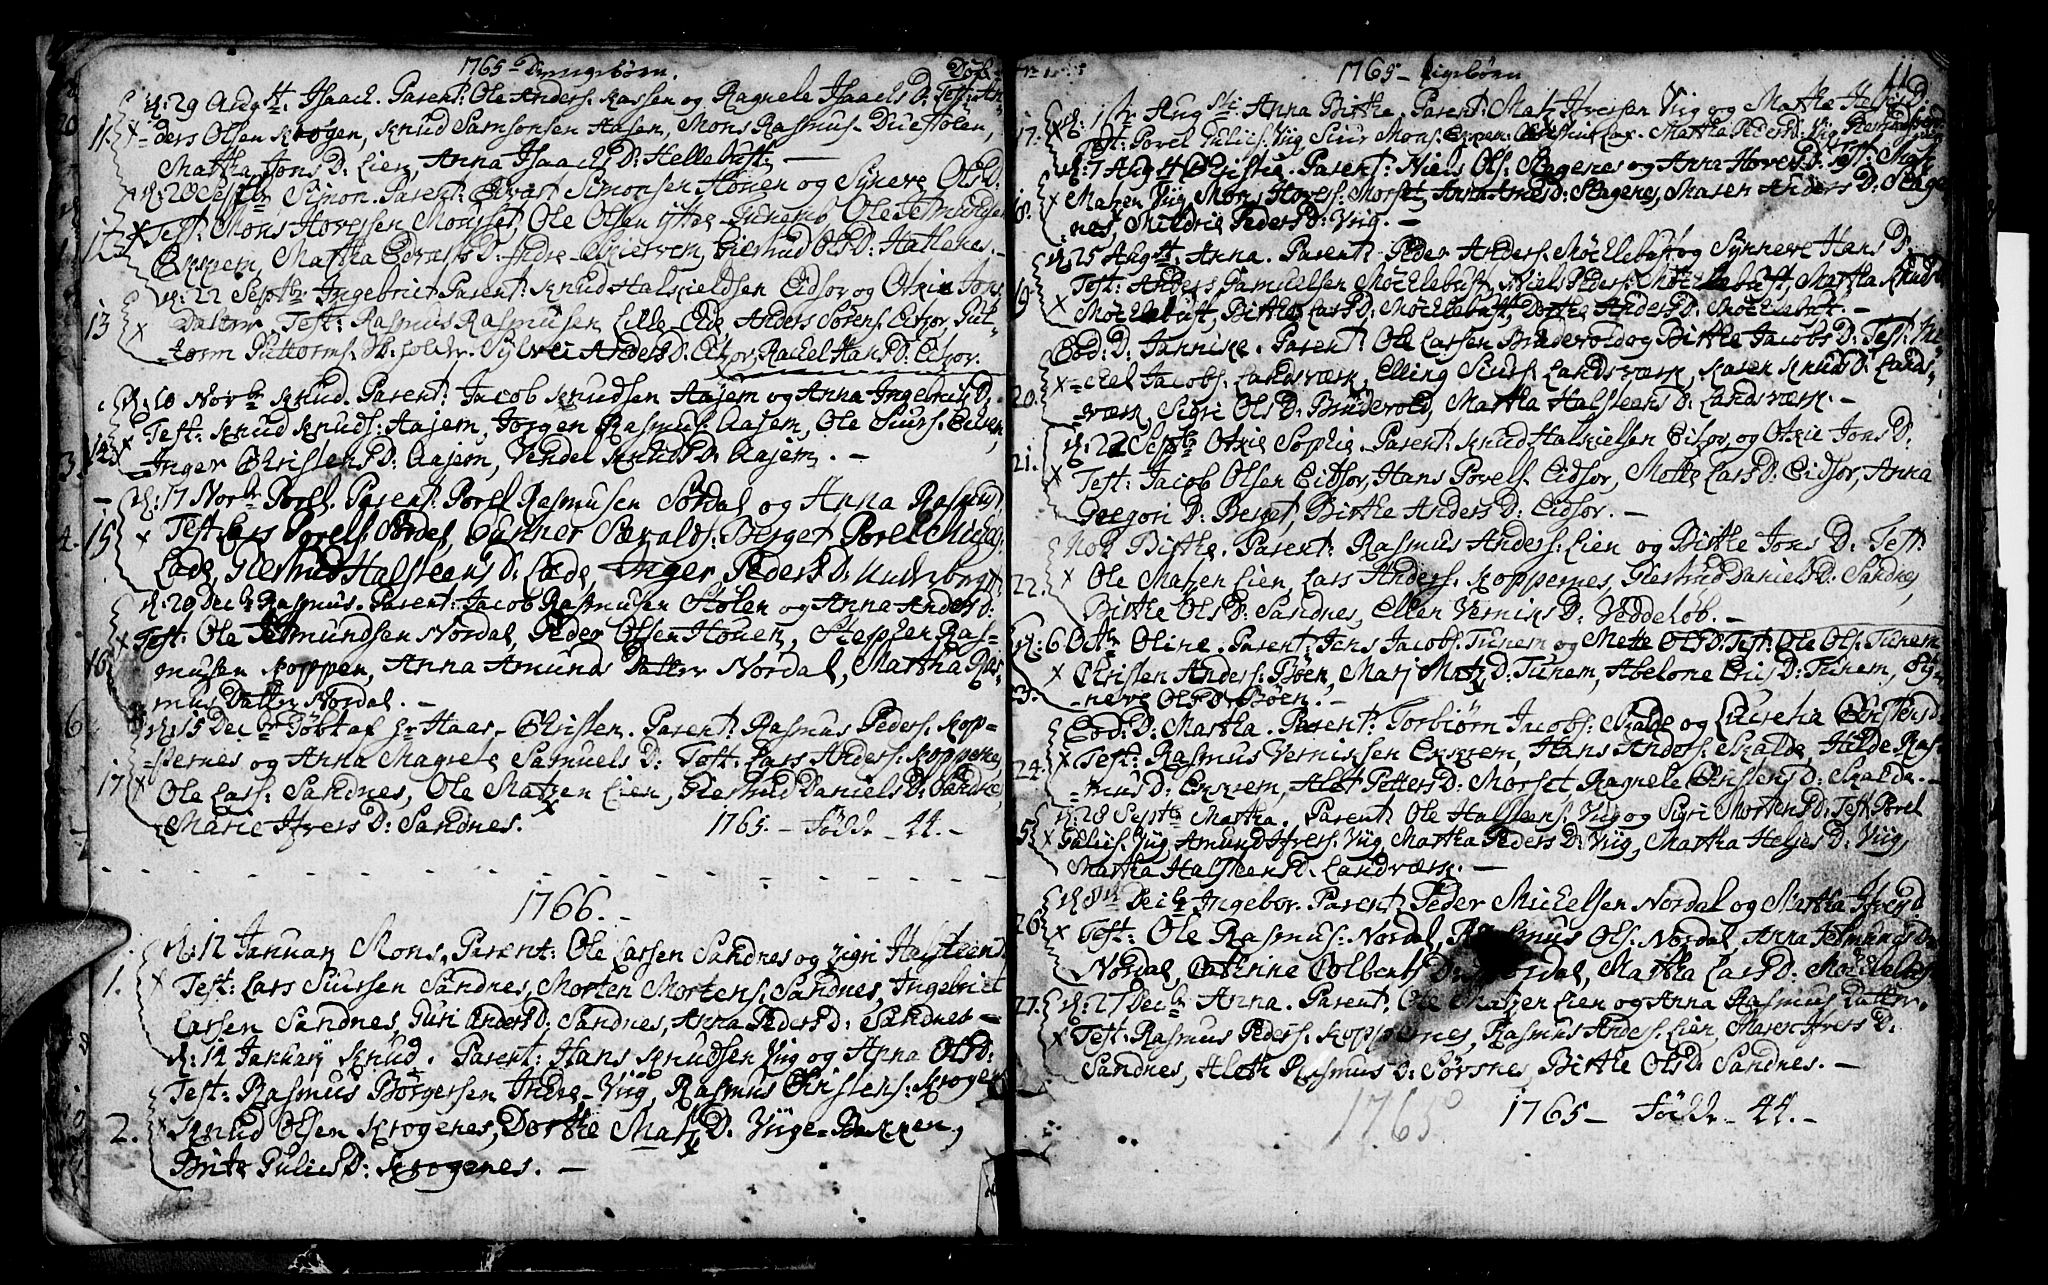 1765 Drengebørn. Døbt
11. d: 29 Augti. Isaach. Parent: Ole Anders: Aassen og Ragnele Isaachs D: Test: An-
ders Olsen Krogen, Knud Samsonsen Aasen, Mons Rasmus: Duestolen,
Martha Jons D: Lien, Anna Isaachs D: Hellebust. —
12. d: 28 Septbr Simon. Parent: Edvart Simonsen Houen og Synneve Ols D:
Test: Mons Hovessen Morset, Ole Olsen ytter
Ekrem, Martha Edvarts D: Giertrud Ols D: Hatlenes. —
13 d: 22 Septbr Ingebriet Parent: Knud Halkieldsen Eidsør og Otkie Jons
Datter, Test: Rasmus Rasmussen Lille-Eide, Anders Sørens: Eidsør, Gut-
torm Guttorms: Sylvei Anders D: Eidsør, Rachel Hans D: Eidsør.
14. d: 10 Novbr Knud. Parent: Jacob Knudsen Aajem og Anna Ingebrits D.
Test: Knud Knuds: Aajem, Jørgen Rasmus: Aajem, Ole Siurs:
Inger Christens D: Aajem, Vendel Knuds D: Aajem. —
15 d: 17 Novbr Povel. Parent: Povel Rasmusen Sørdal og Anna Rasmus D.
Test: Lars Povels: Sørdal, Gunner Sævalds: Berget, Povel Michels:
Lade, Giertrud Halsteens D: Lade, Inger Peders D:
16. d: 29 Decbr Rasmus. Parent: Jacob Rasmusen StøLen og Anna Anders D:
Test: Ole Jetmundsen Nordal, Peder Olsen Houen, Stephen Ras-
musen Koppen, Anna Amunds Datter Nordal, Martha Ras-
mus Datter Nordal. —
17 d: 15 Decbr døbt af Hr Haas. Christen. Parent: Rasmus Peders: Kop-
pernes og Anna Magrete Samuels D: Test: Lars Anders: Koppernes,
Ole Lars: Sandnes, Ole Matzen Lien, Giertrud Daniels D: Sandnes,
Marie Ifvers D: Sandnes. 1765. — Fødde — 44. —
1766. —
1. d: 12 Januar Mons, Parent: Ole Larsen Sandnes og Sigri Halsteens D
Test: Lars Siursen Sandnes, Morten Mortens: Sandnes, Ingebriet
Larsen Sandnes, Guri Anders D: Sandnes, Anna Peders D: Sandnes —
2. d: 14 Januarij Knud. Parent: Hans Knudsen Viig og Anna Ols D:
Test: Rasmus Børgersen Indre-Viig, Rasmus Christens: Krogenes
Knud Olsen Krogenes, Dorthe Matz D. Viige-Bakken,
Brite Gulies D: Krogenes. —
1765 — Pigebørn 11
17. d: 1ste Aug Anna Birthe, Parent: Matz Ifversen Viig og Martha Heljes D.
Test: Povel Gulies: Viig, Siur Mons: Martha Peders D: Viig
18. d: 7 Aug Christie. Parent: Niels Ols: Skagenes og Anna Hoves D: Test: Matz
Matzen Viig, Mons Hoves: Morset, Anna Arnes D: Skagenes, Maren Anders D: Skage-
nes, Mildrie Peders D: Viig. —
19. d: 25 Augsti. Anna. Parent: Peder Anders: Møchlebust og Synneve Hans D.
Test: Anders Samuelsen Møchlebust, Niels Peders: Møchlebust, Martha Knuds D
Møchlebust, Birthe Lars D: Møchlebust, Dorthe Anders D: Møchlebust. —
20. Eod: D: Jannike. Parent: Ole Larsen Brudevold og Birthe Jacobs D: Test: Mi-
chel Jacobs: Landsværk, Elling Siurs: Landsværk, Karen Knuds D: Lands-
værk, Sigri Ols D: Brudevold, Martha Halsteens D: Landsværk. —
21. d: 22 Septbr Otkie Sophie. Parent: Knud Halkielsen Eidsør og Otkie Jons D:
Test: Jacob Olsen Eidsør, Hans Povels: Eidsør, Mette Lars D: Eidsør, Anna
Gregori D: Berget, Birthe Anders D: Eidsør. —
22. Nok Birthe. Parent: Rasmus Anders: Lien og Birthe Jons D: Test:
Ole Matzen Lien, Lars Anders: Koppernes, Giertrud Daniels D: Sandnes,
Birthe Ols D: Sandnes, Ellen Vernikes D: Veddeløb. —
23. d: 6 Octbr Oline. Parent: Jens Jacobs: Tunem og Mette Ols D. Test: Ole Ols: Tunem
Christen Anders: Bøen, Mari Matz D: Tunem, Abelone Eliis D: Tunem, Syn-
neve Ols D: Bøen. —
24. Eod: D: Martha. Parent: Torbiørn Jacobs: Skalde og Lucretia Christens D
Test: Rasmus Vernikssen Ekkrem, Hans Anders: Skalde, Hilde Ras-
mus D: Ekkrem, Alet Petters D: Morset, Ragnele Christens D: Skalde. —
25 d: 28 Septbr Martha. Parent: Ole Halsteens: Viig og Sigri Mortens D: Test: Povel
Gulies: Viig, Amund Ifvers: Viig, Martha Peders D: Viig, Martha Heljes D: Viig,
Martha Halsteens D. Landsværk. —
26. d: 8de Decbr Ingebor. Parent: Peder Michelsen Nordal og Martha Ifvers D.
Test: Ole Rasmus: Nordal, Rasmus Ols: Nordal, Anna Jetmunds D:
Nordal, Cathrine Colbents D: Nordal, Martha Lars D: Møchlebust
27. d: 27 Decbr Anna. Parent: Ole Matzen Lien og Anna Rasmus Datter.
Test: Rasmus Peders: Koppernes, Rasmus Anders: Lien, Maren Ifvers D:
Sandnes, Aleth Rasmus D: Sørsnes, Birthe Ols D: Sandnes. —
1765 1765 — Fødde — 44. —